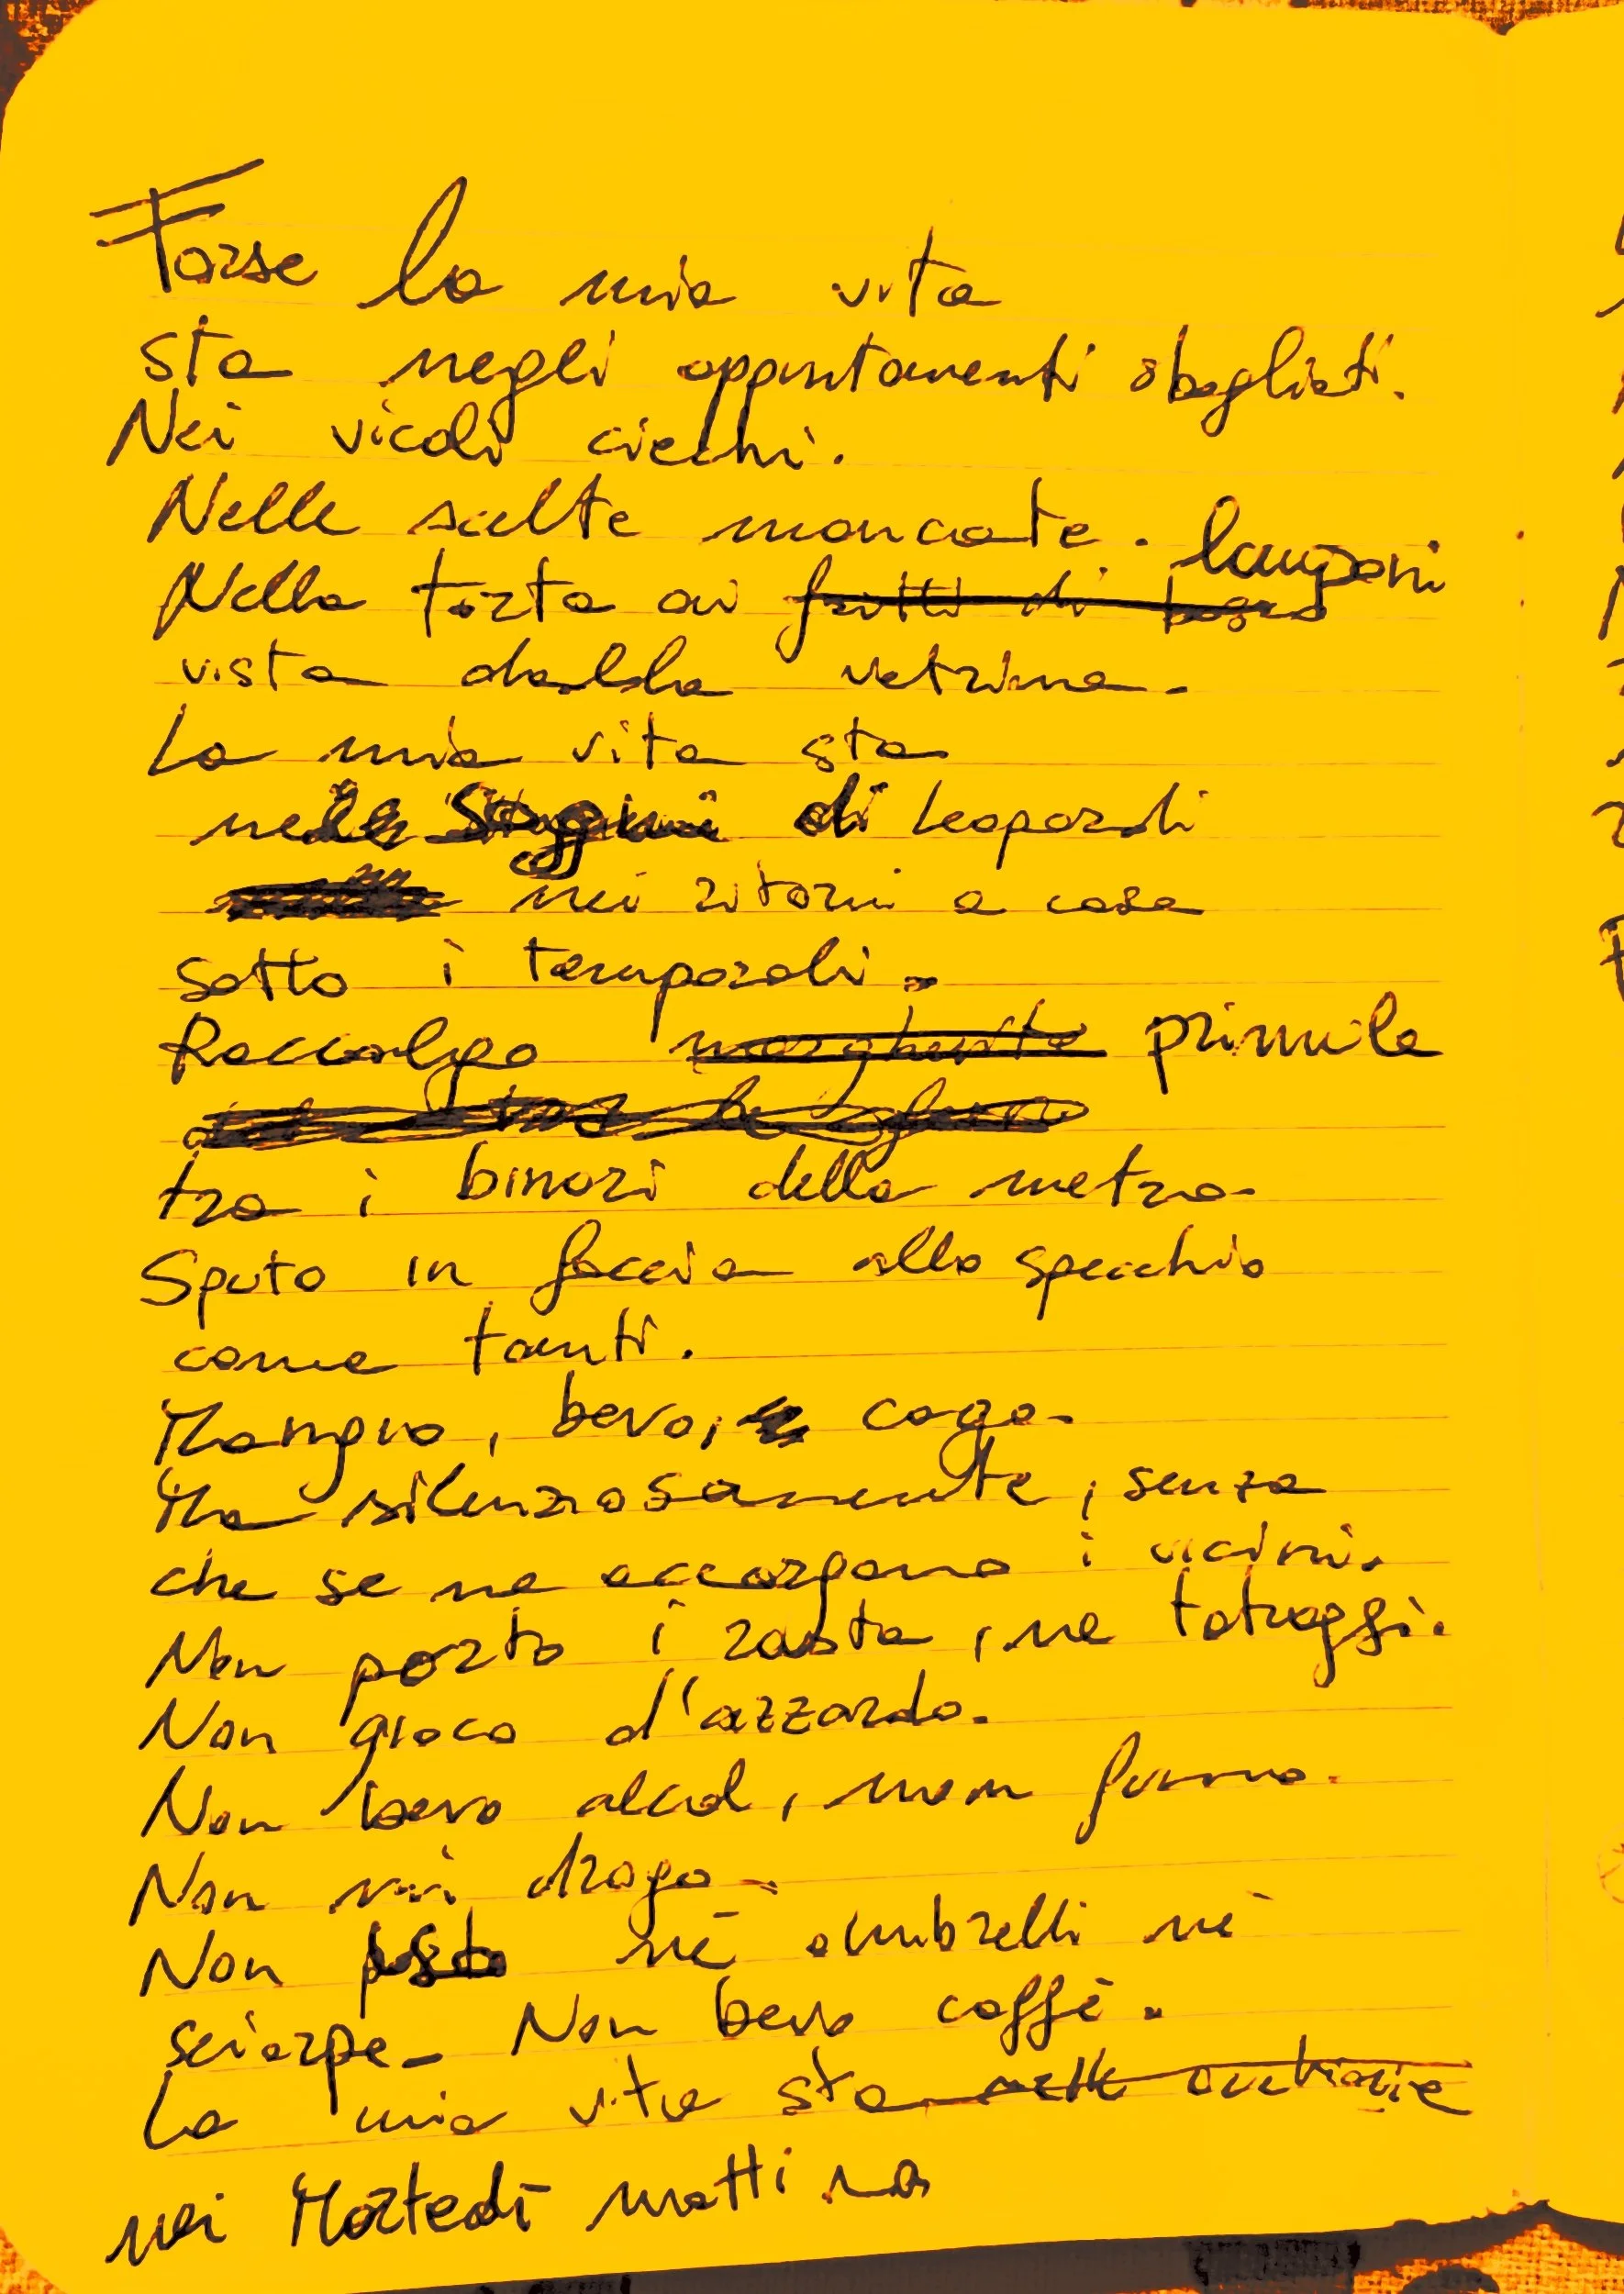 Forse la mia vita
sta negli appuntamenti sbagliati.
Nei vicoli ciechi.
Nelle scelte mancate.
Nella torta ai frutti di bosco lamponi
vista dalla vetrina.
La mia vita sta
nelle di Leopardi
nei ritorni a casa
sotto i temporali.
Raccolgo margherite primule
tra i binari della metro.
Sputo in faccia allo specchio
come tanti.
Mangio, bevo, cago.
Ma silenziosamente, senza
che se ne accorgano i vicini.
Non porto i rasta, ne tatuaggi.
Non gioco d'azzardo.
Non bevo alcol, non fumo.
Non mi drogo.
Non né ombrelli né
sciarpe. Non bevo caffè.
La mia vita sta nelle
nei Martedì mattina